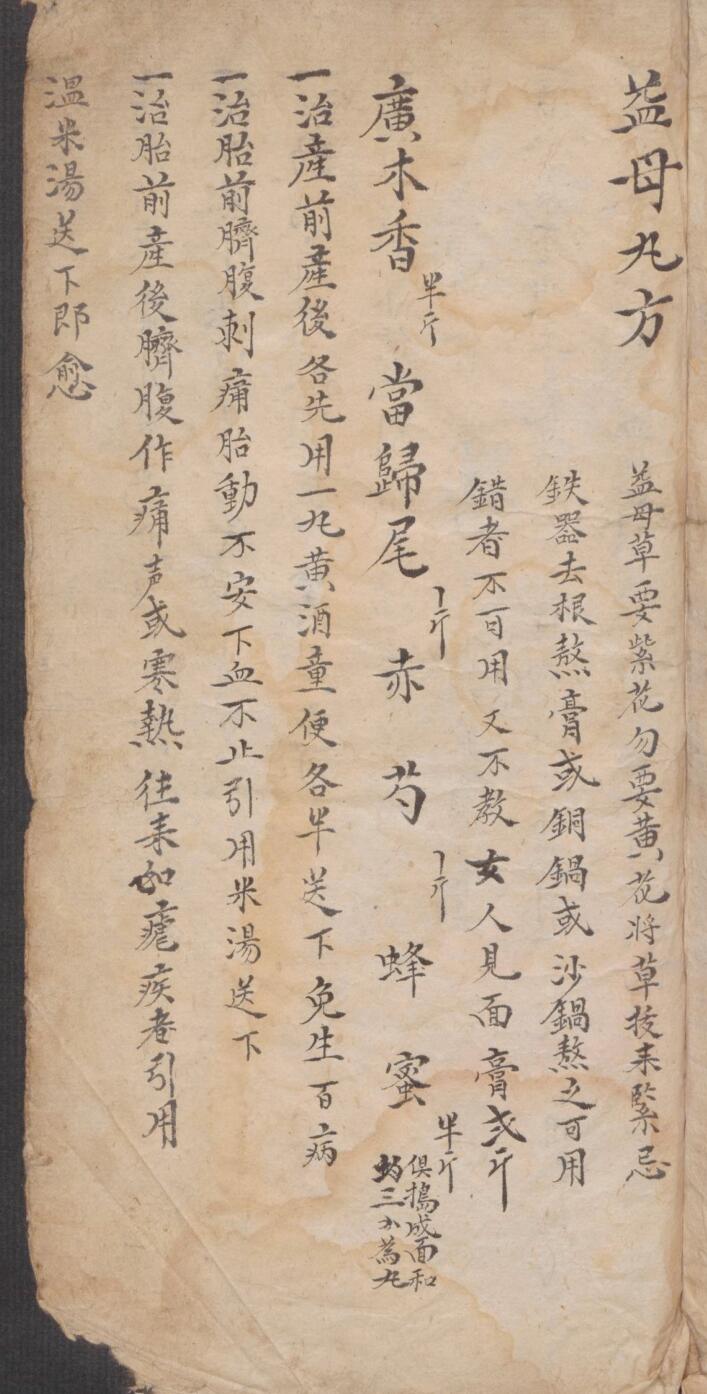 益母丸方
益母草要紫花勿要黄花将草拔来緊忌
鉄器去根熬膏或銅鍋或沙鍋熬之可用
錯者不可用又不教女人見面膏弍斤
廣木香半斤當歸尾丨斤赤芍丨斤蜂蜜半斤俱搗成面和
三小為丸
一治產前產後各先用一丸黄酒童便各半送下免生百病
一治胎前臍腹刺痛胎動不安下血不止引用米湯送下
一治胎前產後臍腹作痛声或寒熱往来如瘧疾者引用
温米湯送下即愈